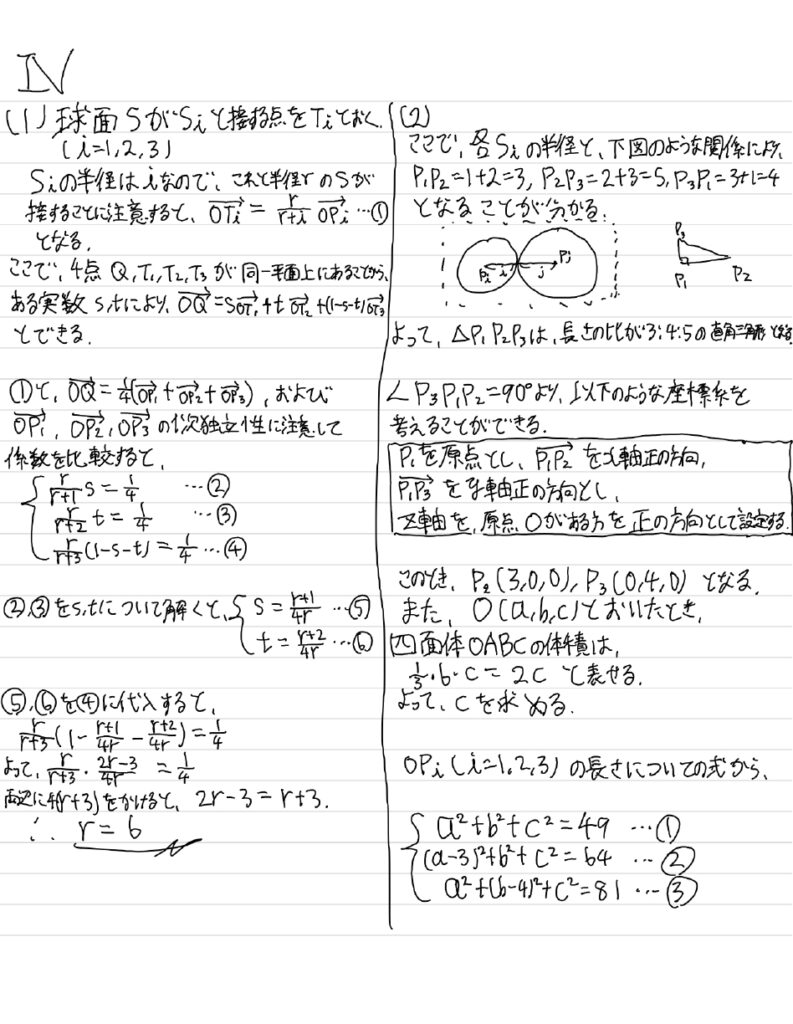 IV
(1) 球面SがSiと接する点をTiとおく.
(i=1,2,3)
Siの半径はiなので、これと半径rのSが
接することに注意すると、$\overrightarrow{OT_i} = \frac{r}{r+i} \overrightarrow{OP_i}$ …①
となる.
ここで、4点Q,T₁,T₂,T₃が同一平面上にあることから、
ある実数s,tにより、$\overrightarrow{OQ} = s\overrightarrow{OT_1} + t\overrightarrow{OT_2} + (1-s-t)\overrightarrow{OT_3}$
とできる.
①と、$\overrightarrow{OQ} = \frac{1}{4}(\overrightarrow{OP_1} + \overrightarrow{OP_2} + \overrightarrow{OP_3})$、および
$\overrightarrow{OP_1}, \overrightarrow{OP_2}, \overrightarrow{OP_3}$の1次独立性に注意して
係数を比較すると、
$\frac{r}{r+1}s = \frac{1}{4}$ …②
$\frac{r}{r+2}t = \frac{1}{4}$ …③
$\frac{r}{r+3}(1-s-t) = \frac{1}{4}$ …④
②,③をs,tについて解くと、$s = \frac{r+1}{4r}$ …⑤
$t = \frac{r+2}{4r}$ …⑥
⑤,⑥を④に代入すると、
$\frac{r}{r+3}(1 - \frac{r+1}{4r} - \frac{r+2}{4r}) = \frac{1}{4}$
よって、$\frac{r}{r+3} \cdot \frac{2r-3}{4r} = \frac{1}{4}$
両辺に4(r+3)をかけると、2r-3=r+3.
∴ r=6
(2)
ここで、各Siの半径と、下図のような関係により、
P₁P₂=1+2=3, P₂P₃=2+3=5, P₃P₁=3+1=4
となることが分かる.
Pi i j Pj
P₃
P₁ P₂
よって、△P₁P₂P₃は、長さの比が3:4:5の直角三角形となる
∠P₃P₁P₂=90°より、以下のような座標系を
考えることができる.
P₁を原点とし、$\overrightarrow{P_1P_2}$をx軸正の方向、
$\overrightarrow{P_1P_3}$をy軸正の方向とし、
z軸を、原点Oがある方を正の方向として設定する.
このとき、P₂(3,0,0), P₃(0,4,0)となる.
また、O(a,b,c)とおいたとき、
四面体OABCの体積は、
$\frac{1}{3} \cdot 6 \cdot c = 2c$ と表せる.
よって、cを求める.
OPi(i=1,2,3)の長さについての式から、
a²+b²+c²=49 …①
(a-3)²+b²+c²=64 …②
a²+(b-4)²+c²=81 …③